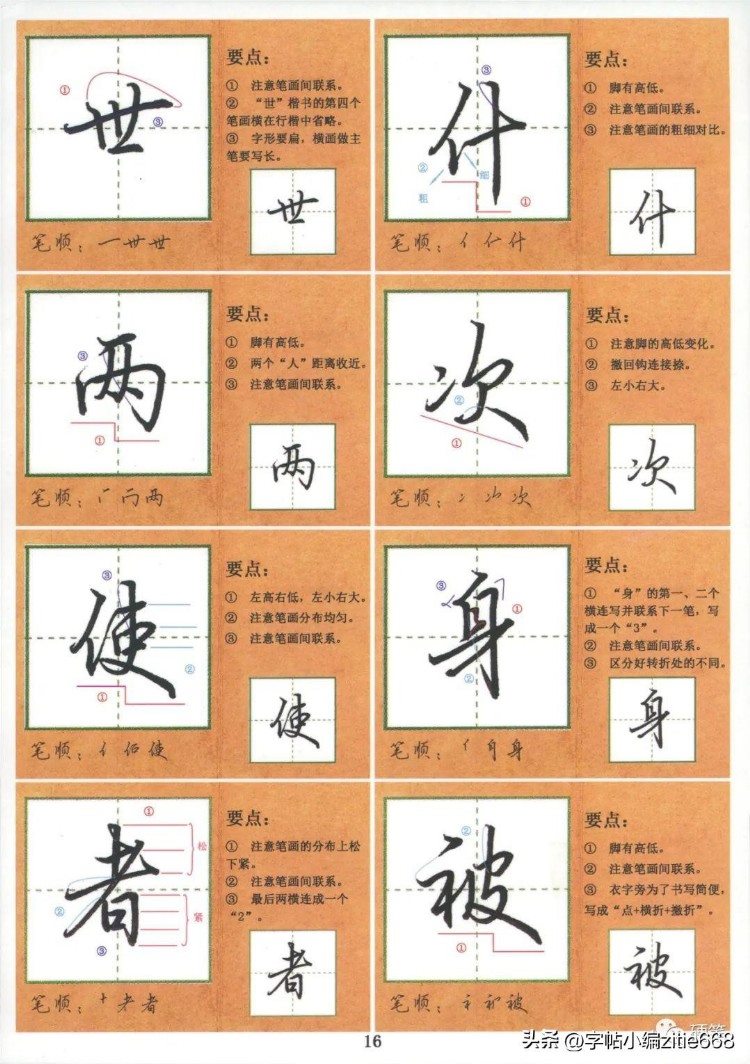 世
①
③
笔顺：一 世 世
要点：
① 注意笔画间联系。
② “世”楷书的第四个
笔画横在行楷中省略。
③ 字形要扁，横画做主
笔要写长。
世
什
③
②
粗
细
①
笔顺：亻 什
要点：
① 脚有高低。
② 注意笔画间联系。
③ 注意笔画的粗细对比。
什
两
③
①
笔顺：两
要点：
① 脚有高低。
② 两个“人”距离收近。
③ 注意笔画间联系。
两
次
②
①
笔顺：冫 次
要点：
① 注意脚的高低变化。
② 撇回钩连接捺。
③ 左小右大。
次
使
③
②
①
笔顺：亻 使
要点：
① 左高右低，左小右大。
② 注意笔画分布均匀。
③ 注意笔画间联系。
使
身
③
①
②
笔顺：身
要点：
① “身”的第一、二个
横连写并联系下一笔，写
成一个“3”。
② 注意笔画间联系。
③ 区分好转折处的不同。
身
者
①
松
②
紧
③
笔顺：者
要点：
① 注意笔画的分布上松
下紧。
② 注意笔画间联系。
③ 最后两横连成一个
“2”。
者
被
②
①
笔顺：被
要点：
① 脚有高低。
② 注意笔画间联系。
③ 衣字旁为了书写简便，
写成“点+横折+撇折”。
被
16
头条@字帖小编zitie668